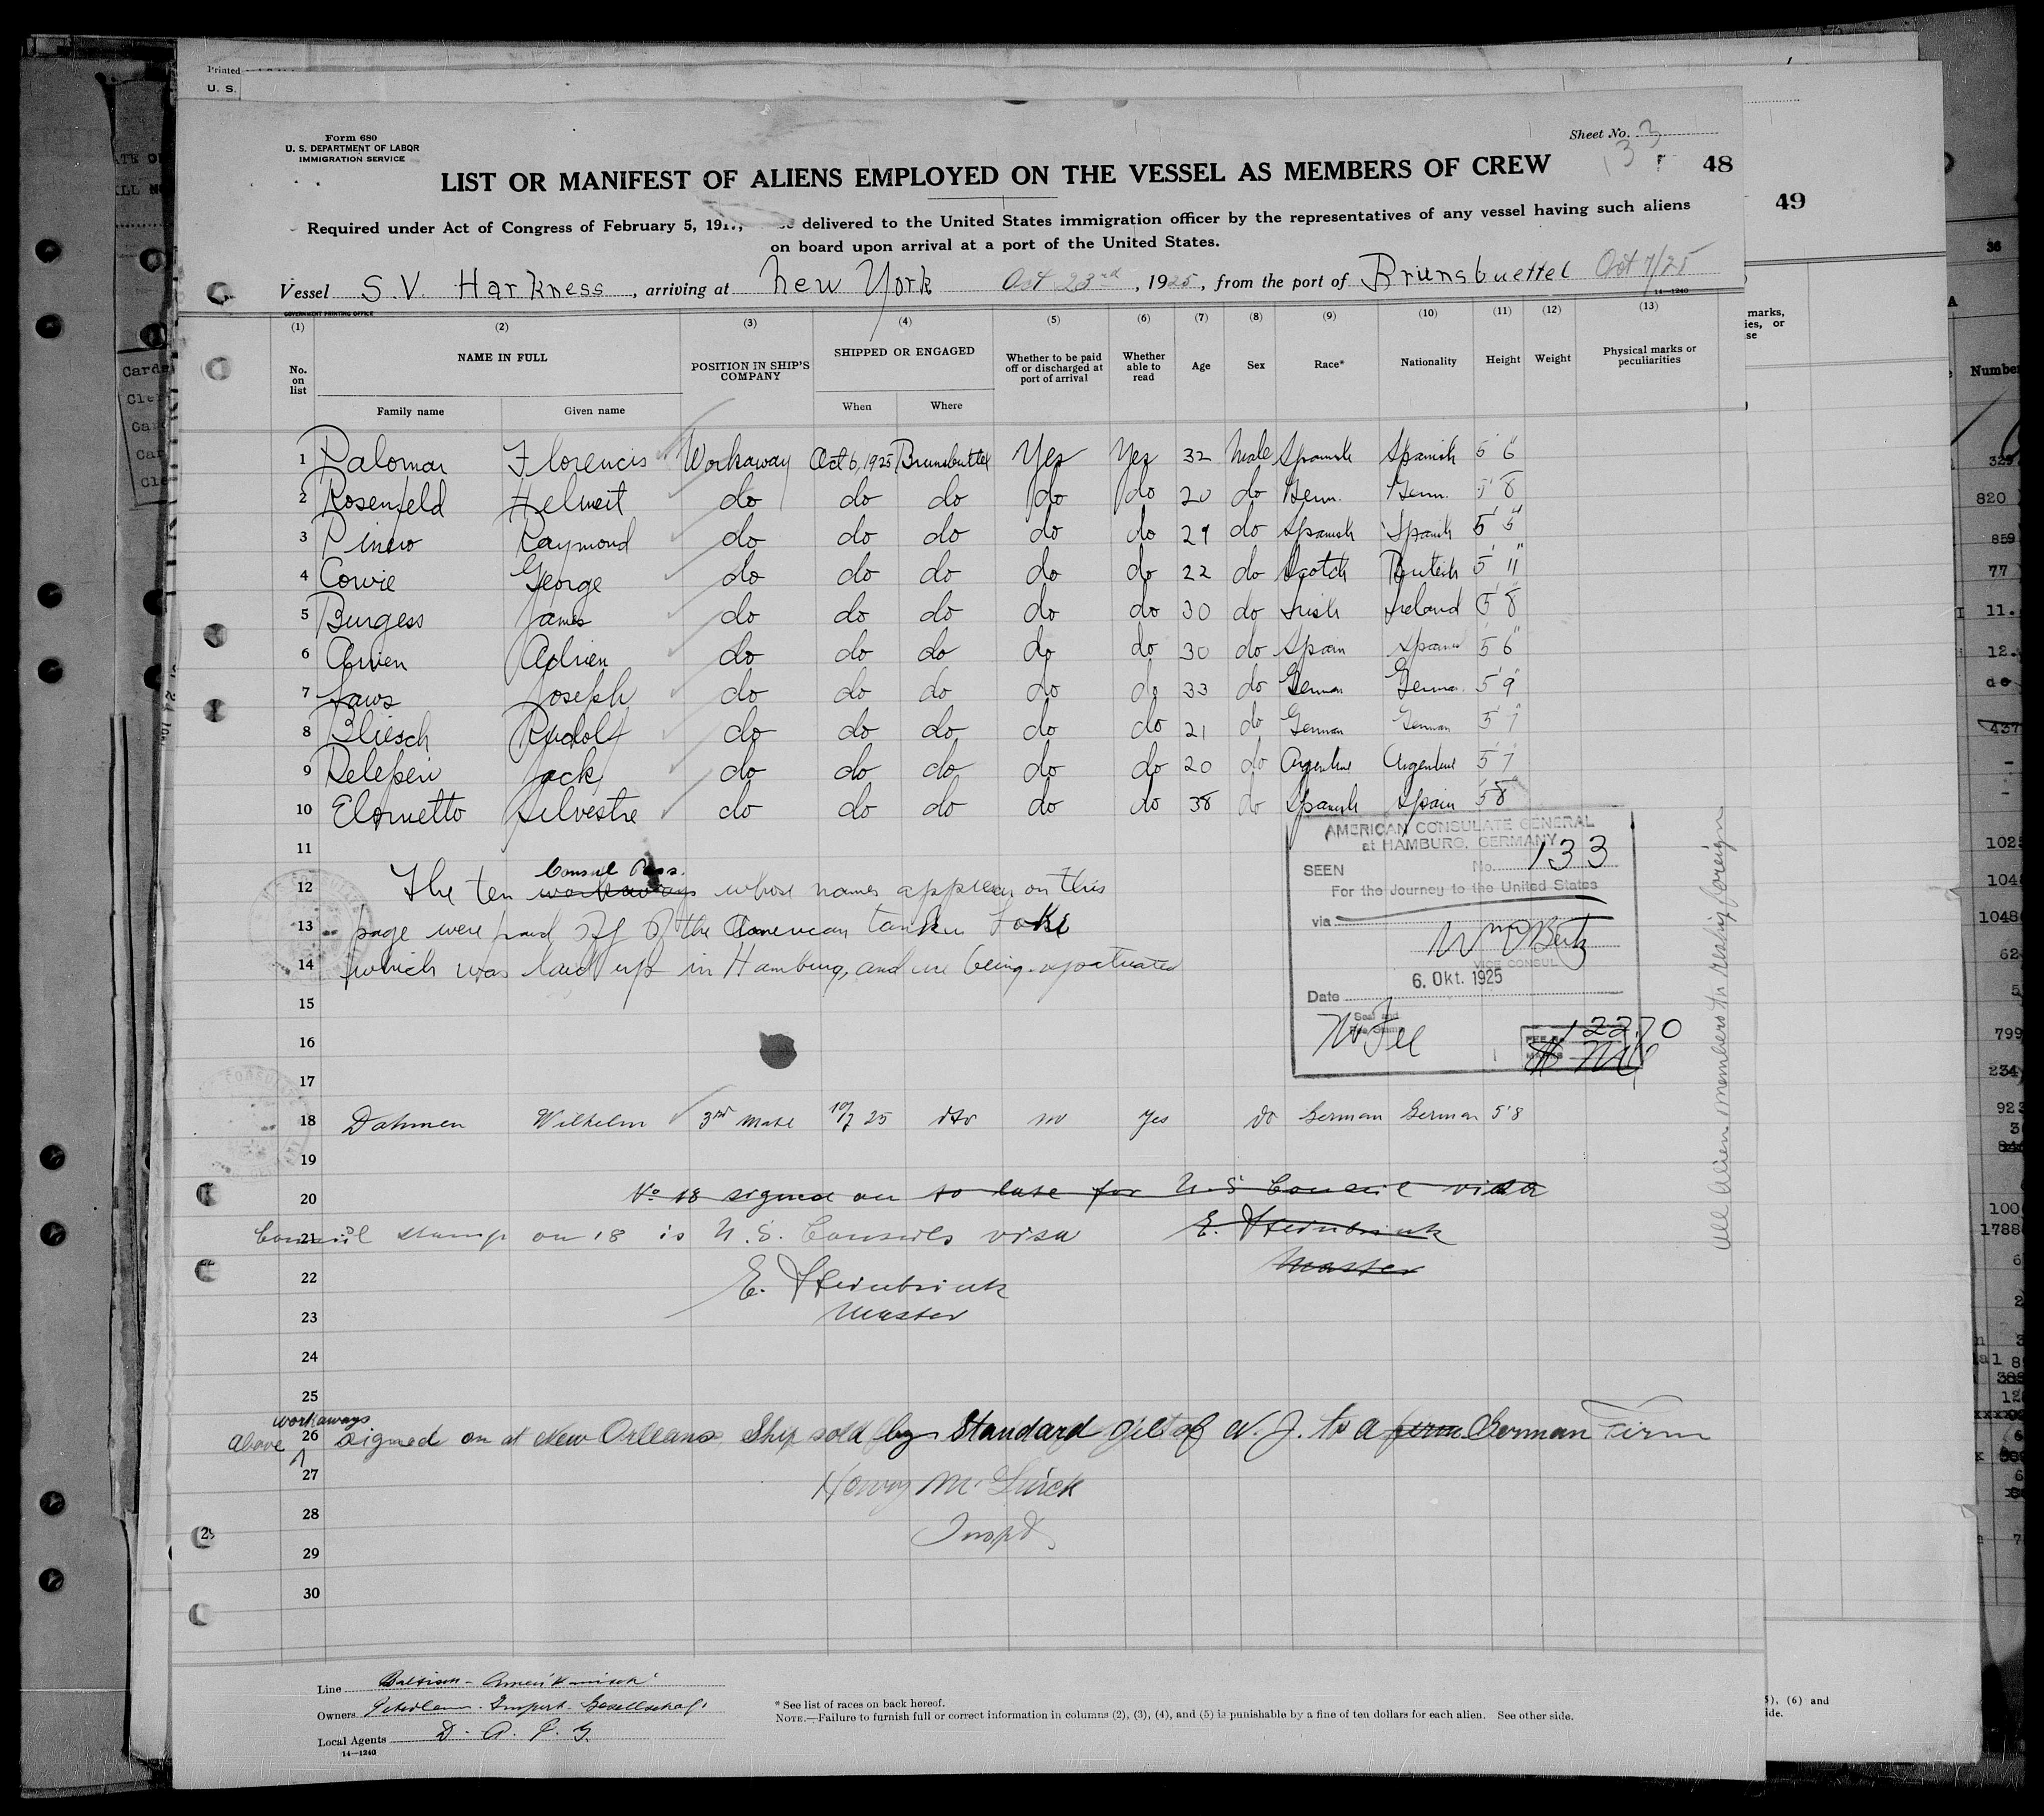 Printed
U. S.
Form 680
U. S. DEPARTMENT OF LABOR
IMMIGRATION SERVICE
Sheet No. 3
48
49
LIST OR MANIFEST OF ALIENS EMPLOYED ON THE VESSEL AS MEMBERS OF CREW
Required under Act of Congress of February 5, 191 , delivered to the United States immigration officer by the representatives of any vessel having such aliens
on board upon arrival at a port of the United States.
Vessel S.V. Harkness, arriving at New York Oct 23rd, 1925, from the port of Brunsbuettel Oct 7/25
GOVERNMENT PRINTING OFFICE
14—1240
(1) (2) (3) (4) (5) (6) (7) (8) (9) (10) (11) (12) (13)
No. on list
NAME IN FULL
Family name Given name
POSITION IN SHIP'S COMPANY
SHIPPED OR ENGAGED
When Where
Whether to be paid off or discharged at port of arrival
Whether able to read
Age Sex Race* Nationality Height Weight
Physical marks or peculiarities
1 Palomar Florencis Workaway Oct 6, 1925 Brunsbuttel Yes Yes 32 Male Spanish Spanish 5' 6"
2 Rosenfeld do do do do do 20 do Germ. Germ. 5' 8
3 Raymond do do do do do 29 do Spanish Spanish 5' 5"
4 Cowie George do do do do do 22 do Scotch British 5' 11"
5 Burgess James do do do do do 30 do Irish Ireland 5' 8
6 Adrien do do do do do 30 do Spain 5' 6"
7 Laws Joseph do do do do do 33 do German German 5' 9"
8 Bliesch Rudolf do do do do do 21 do German German 5' 7"
9 Jack do do do do do 20 do Argentine Argentine 5' 7
10 Elorvetto Silvestre do do do do do 38 do Spanish Spain 5' 8
11
Consul Pass.
12 The ten workaways whose names appear on this
13 page were paid off of the American tanker
14 which was laid up in Hamburg, and are being repatriated
AMERICAN CONSULATE GENERAL
at HAMBURG, GERMANY
SEEN No. 133
For the Journey to the United States
via
VICE CONSUL
Date 6. Okt. 1925
No Fee
1227
15
16
17
18 Dahmen Wilhelm 3rd Mate 10/7 25 dto no yes do German German 5'8
19
20 No 18 signed on to late for U.S. Consul visa
21 Consul stamp on 18 is U.S. Consuls visa E. Steinbrink
Master
22 E. Steinbrink
23 Master
24
25
workaways
26 Above signed on at New Orleans. Ship sold by Standard Oil of N. J. to a firm German Firm
27
28 Inspt
29
30
All alien members to reship foreign
Line Baltisch-Amerikanische
Owners Petroleum-Import-Gesellschaft
Local Agents D. A. P. G.
14—1240
* See list of races on back hereof.
NOTE.—Failure to furnish full or correct information in columns (2), (3), (4), and (5) is punishable by a fine of ten dollars for each alien. See other side.